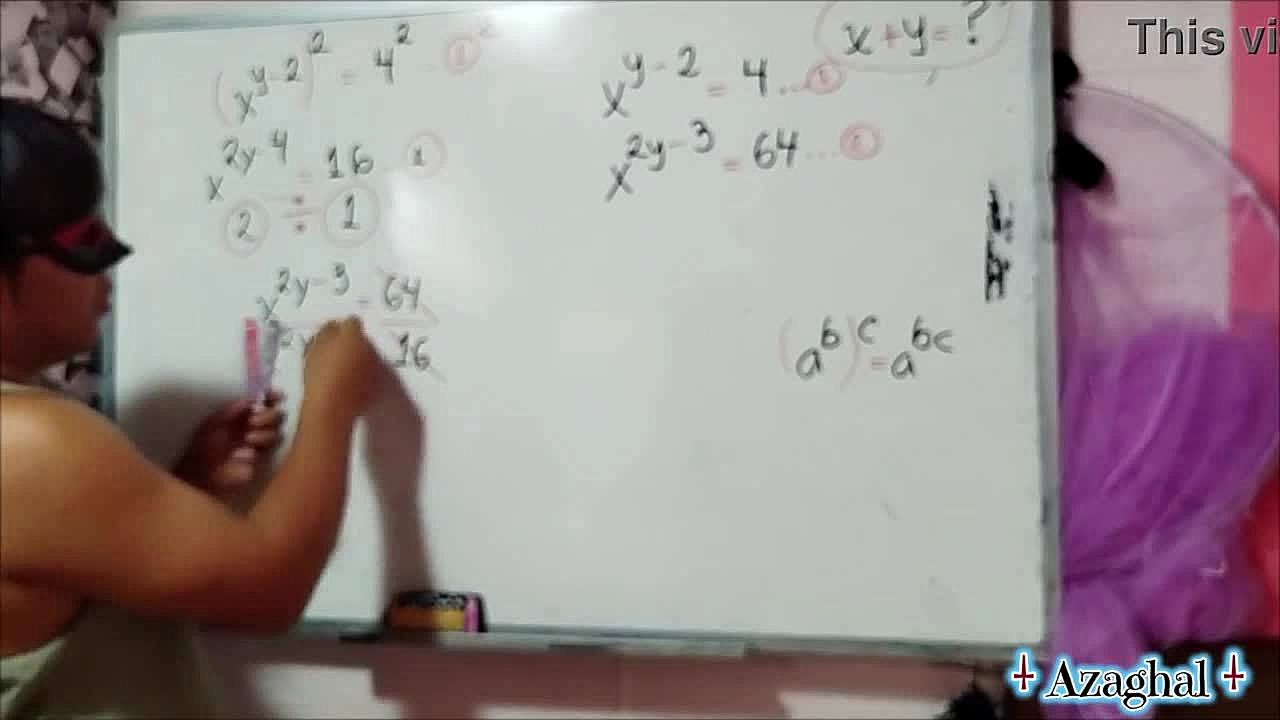 (x^{y-2})^2 = 4^2 ... ①^2
x^{2y-4} = 16 ... ①
② ÷ ①
x^{2y-3} = 64
2y 16
x+y=?
x^{y-2} = 4 ... ①
x^{2y-3} = 64 ... ②
(a^b)^c = a^{bc}
This vi
Azaghal